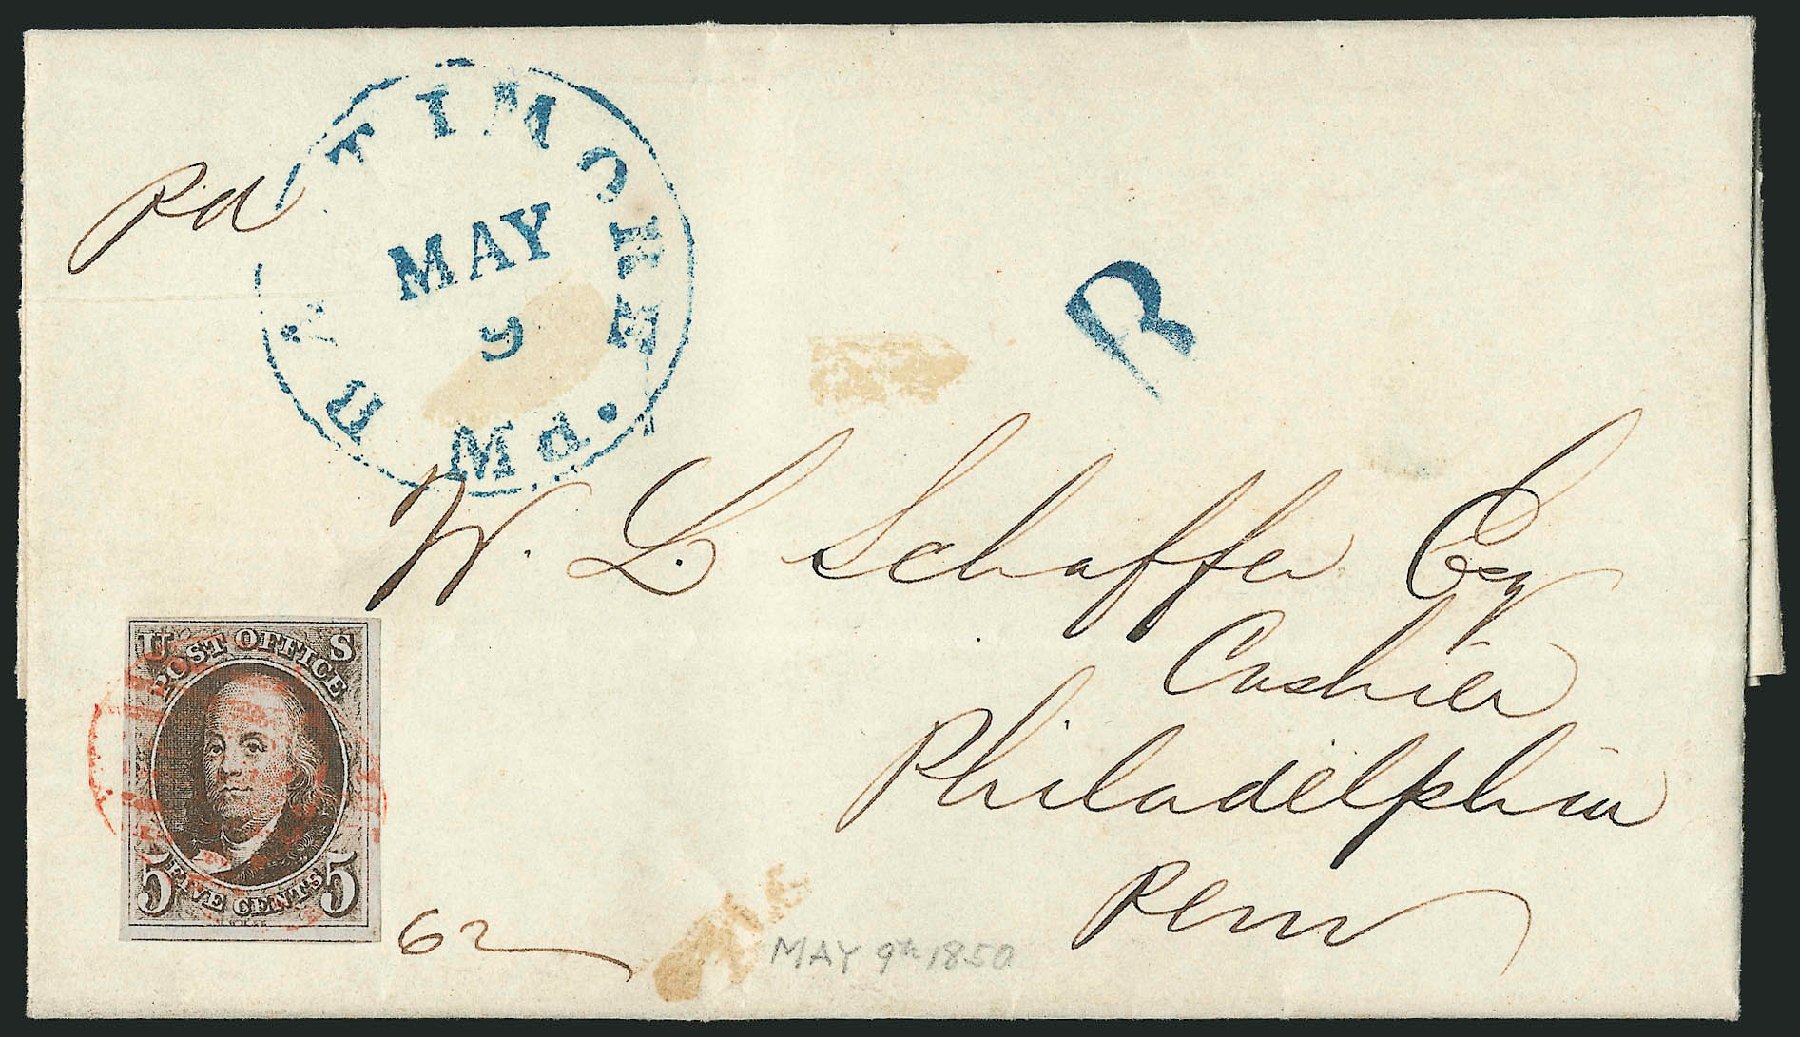 BALTIMORE Md.
MAY
9
pd
R
W. L. Schaffer Esq
Cashier
Philadelphia
Penn
U S
POST OFFICE
5 FIVE CENTS 5
62
MAY 9th 1850